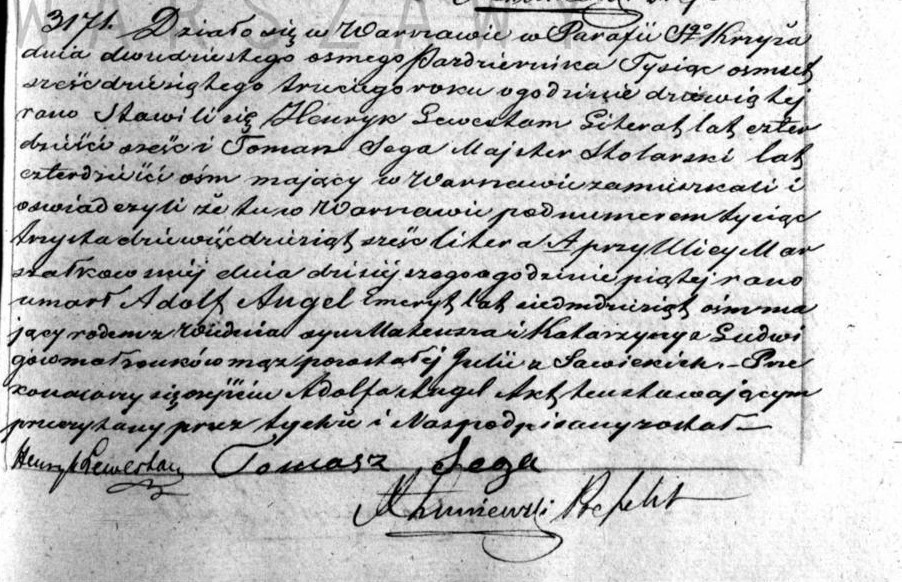 WARSZAW
3171. Działo się w Warszawie w Parafii Sgo Krzyża
dnia dwudziestego osmego Pazdziernika Tysiąc osmset
sześćdziesiątego trzeciego roku o godzinie dziewiątej
rano Stawili się Henryk Lewestam Literat lat czter
dzieści sześć i Tomasz Sega Majster Stolarski lat
czterdzieści ośm mający w Warszawie zamieszkali i
oswiadczyli że tu w Warszawie pod numerem tysiąc
trzysta dziewięćdziesiąt sześć litera A przy Ulicy Mar
szałkowskiej dnia dzisiejszego o godzinie piątej rano
umarł Adolf Augel Emeryt lat siedmdziesiąt ośm ma
jący rodem z Wiednia syn Mateusza i Katarzyny z Ludwi
gów małżonków mąż pozostałej Julii z Sawickich. – Prze
konawszy się o zejściu Adolfa Augel Akt ten stawającym
przeczytany przez tychże i Nas podpisany został —
Henryk Lewestam Tomasz Sega